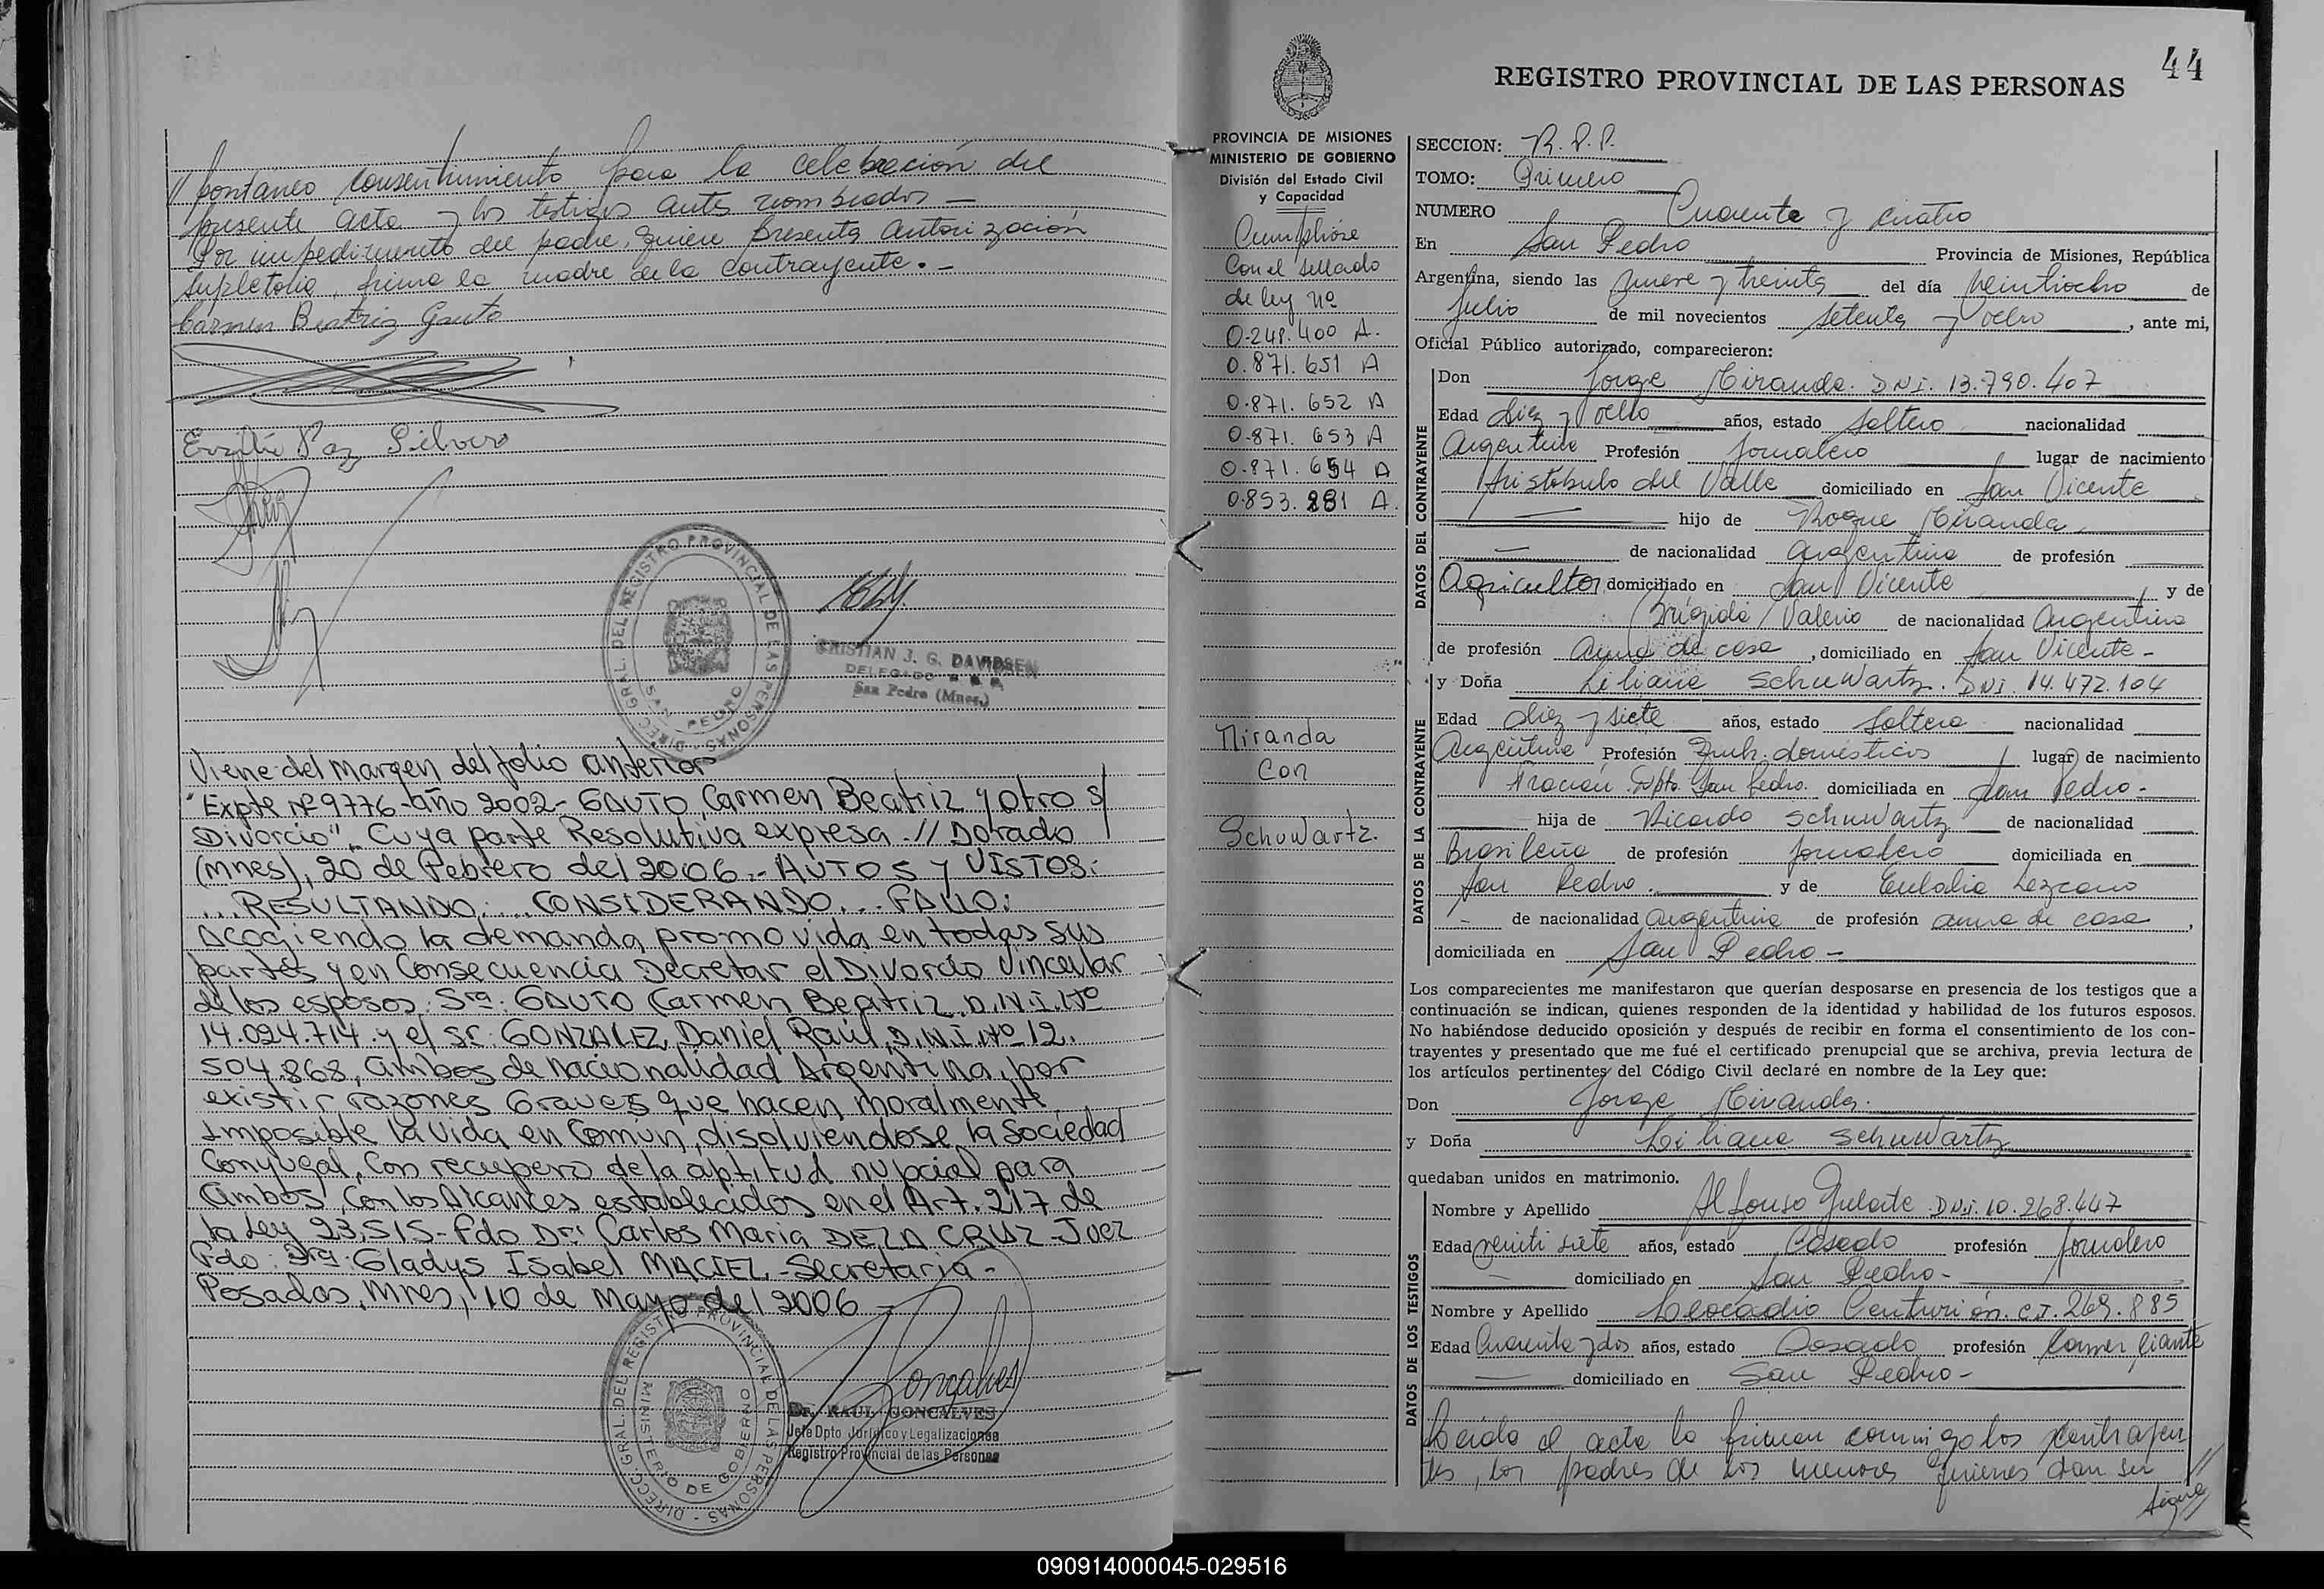 // pontáneo consentimiento para la celebración del
presente acta y los testigos antes nombrados —
Por impedimento del padre, quien presenta autorización
supletoria, firma la madre de la contrayente. —
Carmen Beatriz Gauto
REGISTRO PROVINCIAL DE LAS PERSONAS
DIRECC. GRAL. DEL
SAN PEDRO
CRISTIAN J. G. DAVIDSEN
DELEGADO
San Pedro (Mnes.)
Viene del margen del folio anterior
"Expte Nº 9776 - año 2002 - GAUTO, Carmen Beatriz y otro s/
Divorcio", Cuya parte Resolutiva expresa - // Dorado
(mnes), 20 de Febrero del 2006.- AUTOS Y VISTOS:
...RESULTANDO:... CONSIDERANDO... FALLO:
Acogiendo la demanda promovida en todas sus
partes y en Consecuencia Decretar el Divorcio Vincular
de los esposos: Sra: GAUTO Carmen Beatriz, D.N.I. Nº
14.024.714 y el Sr: GONZALEZ, Daniel Raúl, D.N.I. Nº 12.
504.868, ambos de nacionalidad Argentina, por
existir razones Graves que hacen moralmente
Imposible la vida en Común, disolviéndose la Sociedad
Conyugal, Con recupero de la aptitud nupcial para
ambos, con los Alcances establecidos en el Art. 217 de
la Ley 23.515 - Fdo Dr: Carlos Maria DE LA CRUZ - Juez
Fdo: Dra: Gladys Isabel MACIEL - Secretaria -
Posadas, Mnes, 10 de Mayo del 2006
DIRECC. GRAL. DEL REGISTRO PROVINCIAL DE LAS PERSONAS
MINISTERIO DE GOBIERNO
Dr. RAUL GONCALVES
Jefe Dpto Jurídico y Legalizaciones
Registro Provincial de las Personas
PROVINCIA DE MISIONES
MINISTERIO DE GOBIERNO
División del Estado Civil
y Capacidad
Con el sellado
de ley nº
0.248.400 A.
0.871.651 A
0.871.652 A
0.871.653 A
0.871.654 A
0.853.281 A.
Miranda
Con
Schuwartz.
44
REGISTRO PROVINCIAL DE LAS PERSONAS
SECCION: R.P.P.
TOMO: Primero
NUMERO Cuarenta y cuatro
En San Pedro Provincia de Misiones, República
Argentina, siendo las nueve y treinta del día veintiocho de
Julio de mil novecientos setenta y ocho, ante mi,
Oficial Público autorizado, comparecieron:
DATOS DEL CONTRAYENTE
Don Jorge Miranda. DNI. 13.790.407
Edad diez y ocho años, estado soltero nacionalidad
Argentina Profesión Jornalero lugar de nacimiento
Aristóbulo del Valle domiciliado en San Vicente
hijo de Roque Miranda
de nacionalidad argentina de profesión
Agricultor domiciliado en San Vicente y de
Brígida Valerio de nacionalidad Argentina
de profesión ama de casa, domiciliado en San Vicente -
DATOS DE LA CONTRAYENTE
y Doña Liliana Schuwartz. DNI. 14.472.104
Edad diez y siete años, estado soltera nacionalidad
Argentina Profesión domésticos lugar de nacimiento
Dpto. San Pedro. domiciliada en San Pedro -
hija de Ricardo Schuwartz de nacionalidad
Brasileña de profesión jornalero domiciliada en
San Pedro. y de Eulalia Lezcano
- de nacionalidad argentina de profesión ama de casa,
domiciliada en San Pedro -
Los comparecientes me manifestaron que querían desposarse en presencia de los testigos que a
continuación se indican, quienes responden de la identidad y habilidad de los futuros esposos.
No habiéndose deducido oposición y después de recibir en forma el consentimiento de los con-
trayentes y presentado que me fué el certificado prenupcial que se archiva, previa lectura de
los artículos pertinentes del Código Civil declaré en nombre de la Ley que:
Don Jorge Miranda.
y Doña Liliana Schuwartz
quedaban unidos en matrimonio.
DATOS DE LOS TESTIGOS
Nombre y Apellido Alfonso DNI. 10.268.447
Edad veinti siete años, estado Casado profesión Jornalero
domiciliado en San Pedro -
Nombre y Apellido Leocadio Centurión. C.I. 269.885
Edad Cuarenta y dos años, estado Casado profesión Comerciante
domiciliado en San Pedro -
Leída el acta la firman conmigo los contrayen
tes, los padres de los menores quienes dan su //
Sigue //
090914000045-029516